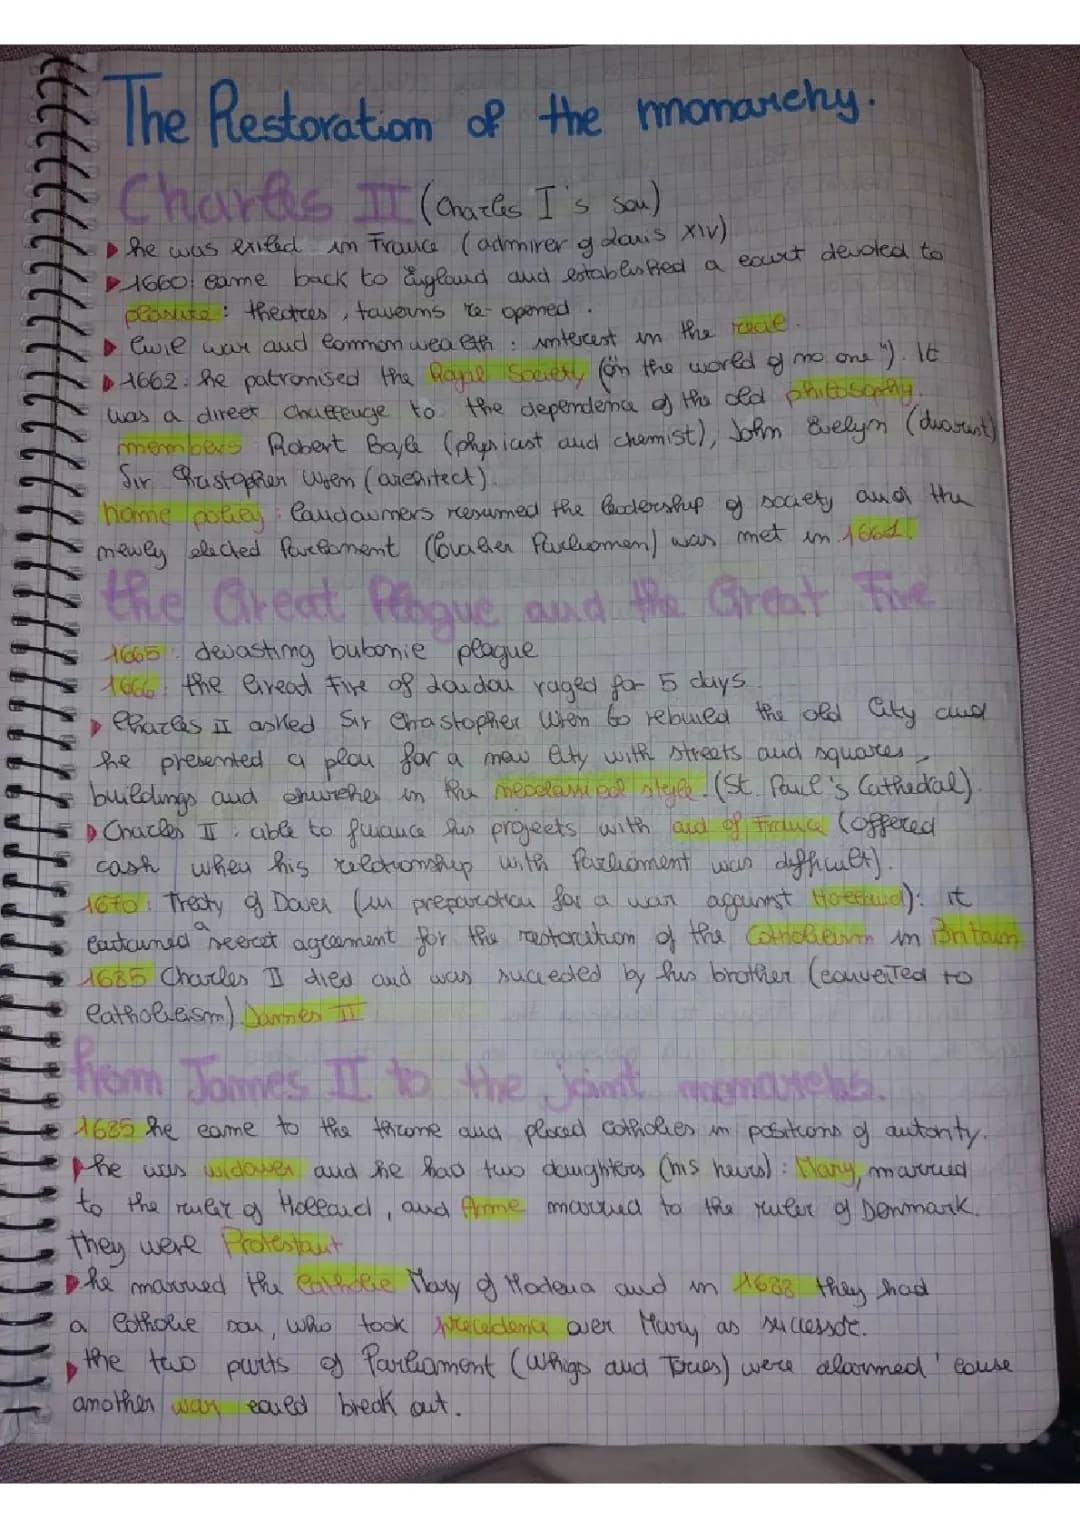 The Restoration of the monarchy.
Charles II (Charles I's son)
he was exiled in France (admirer of Louis XIV)
1660: came back to England and established a court devoted to
pleasure: theatres, taverns re-opened.
Civil war and Commonwealth: interest in the real.
1662: he patronised the Royal Society (in the world of no one"). It
was a direct challenge to the dependence of the old philosophy.
members Robert Boyle (physicist and chemist), John Evelyn (diarist)
Sir Christopher Wren (architect).
home policy: Landowners resumed the leadership of society and the
newly elected Parliament (Cavalier Parliament) was met in 1661.
the Great Plague and the Great Fire
1665: devasting bubonic plague
1666: the Great Fire of London raged for 5 days.
Charles II asked Sir Christopher Wren to rebuild the old City and
he presented a plan for a new City with streets and squares,
buildings and churches in the neoclassical style. (St. Paul's Cathedral).
Charles II: able to finance his projects with aid of France (offered
cash when his relationship with Parliament was difficult).
1670: Treaty of Dover (in preparation for a war against Holland): it
contained a secret agreement for the restoration of the Catholicism in Britain
1685 Charles II died and was succeded by his brother (converted to
Catholicism) James II
from James II to the joint monarchs.
1685 he came to the throne and placed catholics in positions of autority.
he was widower and he had two daughters (his heirs): Mary, married
to the ruler of Holland, and Anne married to the ruler of Denmark.
they were Protestant
he married the Catholic Mary of Modena and in 1688 they had
a Catholic son, who took precedence over Mary as successor.
the two parts of Parliament (Whigs and Tories) were alarmed 'cause
another war could break out.